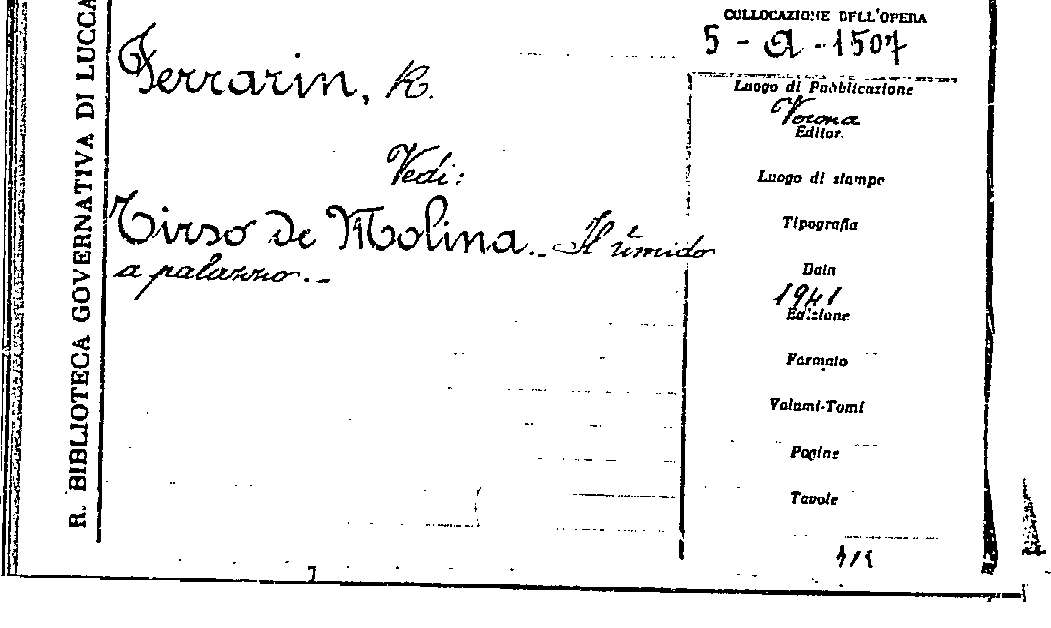 R. BIBLIOTECA GOVERNATIVA DI LUCCA
COLLOCAZIONE DELL'OPERA
5 - A - 1507
Ferrarin, R.
Vedi:
Tirso de Molina.- Il timido
a palazzo.-
Luogo di Pubblicazione
Verona
Editor.
Luogo di stampe
Tipografia
Data
1941
Edizione
Formato
Volumi-Tomi
Pagine
Tavole